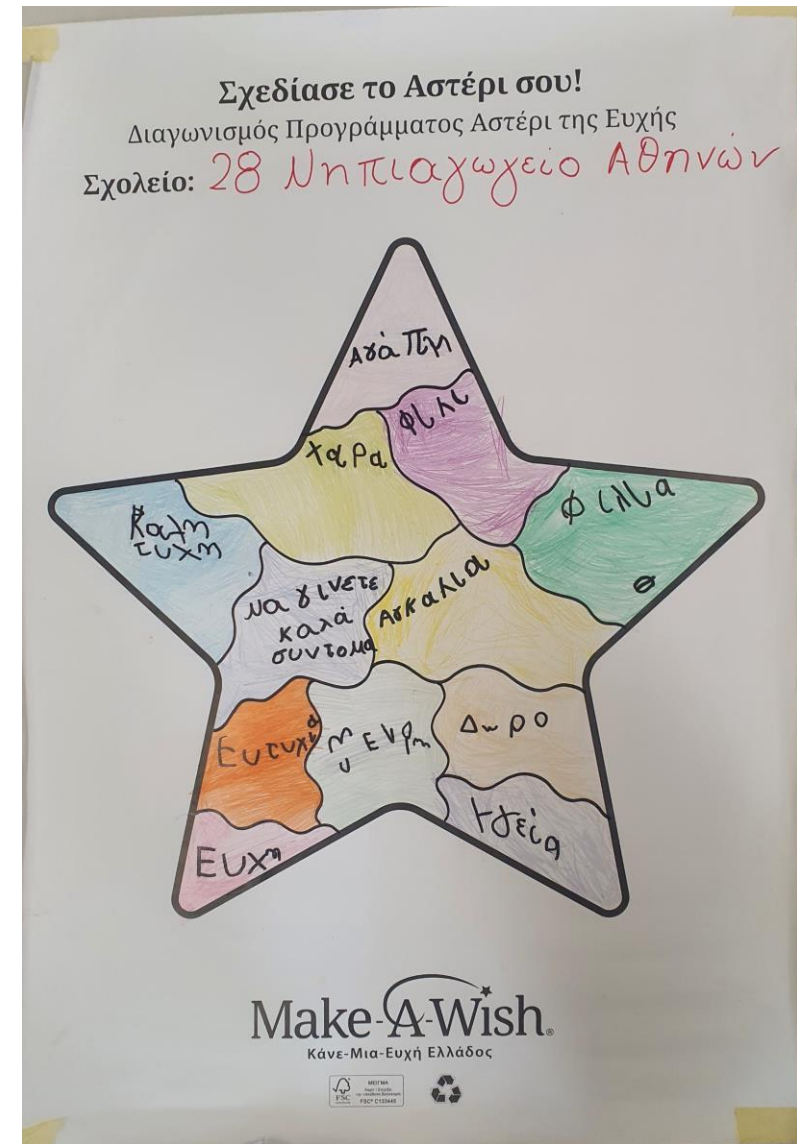 Σχεδίασε το Αστέρι σου!
Διαγωνισμός Προγράμματος Αστέρι της Ευχής
Σχολείο: 28 Νηπιαγωγείο Αθηνών
Αγάπη
Φιλι
Χαρα
Φιλια
Καλη
τυχη
να γινετε
καλά
συντομα
Αγκαλια
Ευτυχια
Δωρο
Υγεία
Ευχη
Make-A-Wish®
Κάνε-Μια-Ευχή Ελλάδος
FSC
ΜΕΙΓΜΑ
FSC® C133445